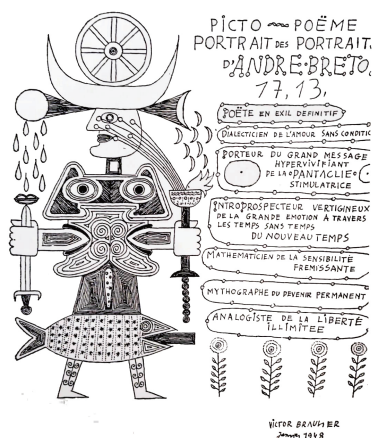 PICTO ~ POËME
PORTRAIT DES PORTRAIT
D'ANDRE·BRETO
17, 13,
POËTE EN EXIL DEFINITIF
DIALECTICIEN DE L'AMOUR SANS CONDITIO
PORTEUR DU GRAND MESSAGE
HYPERVIVIFIANT
DE LA "PANTACLIE"
STIMULATRICE
INTROPROSPECTEUR VERTIGINEUX
DE LA GRANDE EMOTION A TRAVERS
LES TEMPS SANS TEMPS
DU NOUVEAU TEMPS
MATHEMATICIEN DE LA SENSIBILITÉ
FREMISSANTE
MYTHOGRAPHE DU DEVENIR PERMANENT
ANALOGISTE DE LA LIBERTÉ
ILLIMITEE
VICTOR BRAUNER
1948